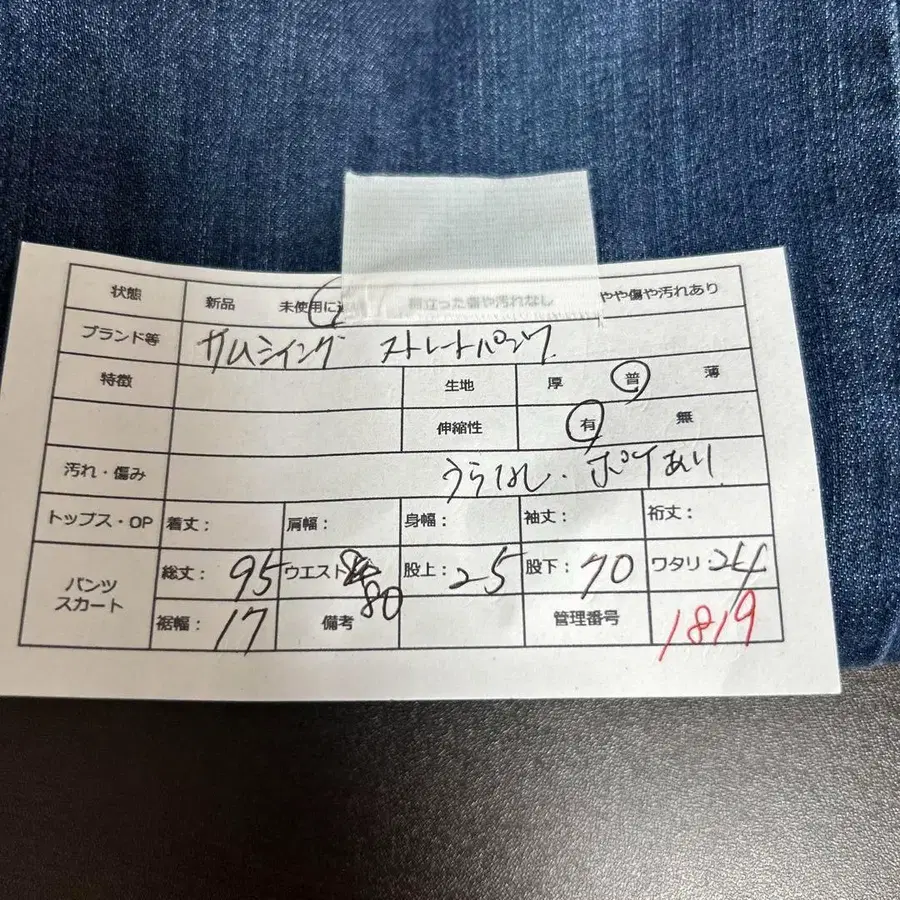 状態 新品 未使用に近 目立った傷や汚れなし やや傷や汚れあり
ブランド等 サムシイング ストレートパンツ
特徴 生地 厚 普 薄
伸縮性 有 無
汚れ・傷み うらなし・ポケあり
トップス・OP 着丈: 肩幅: 身幅: 袖丈: 裄丈:
パンツ スカート 総丈: 95 ウエスト 80 股上: 25 股下: 70 ワタリ: 24
裾幅: 17 備考 管理番号 1819